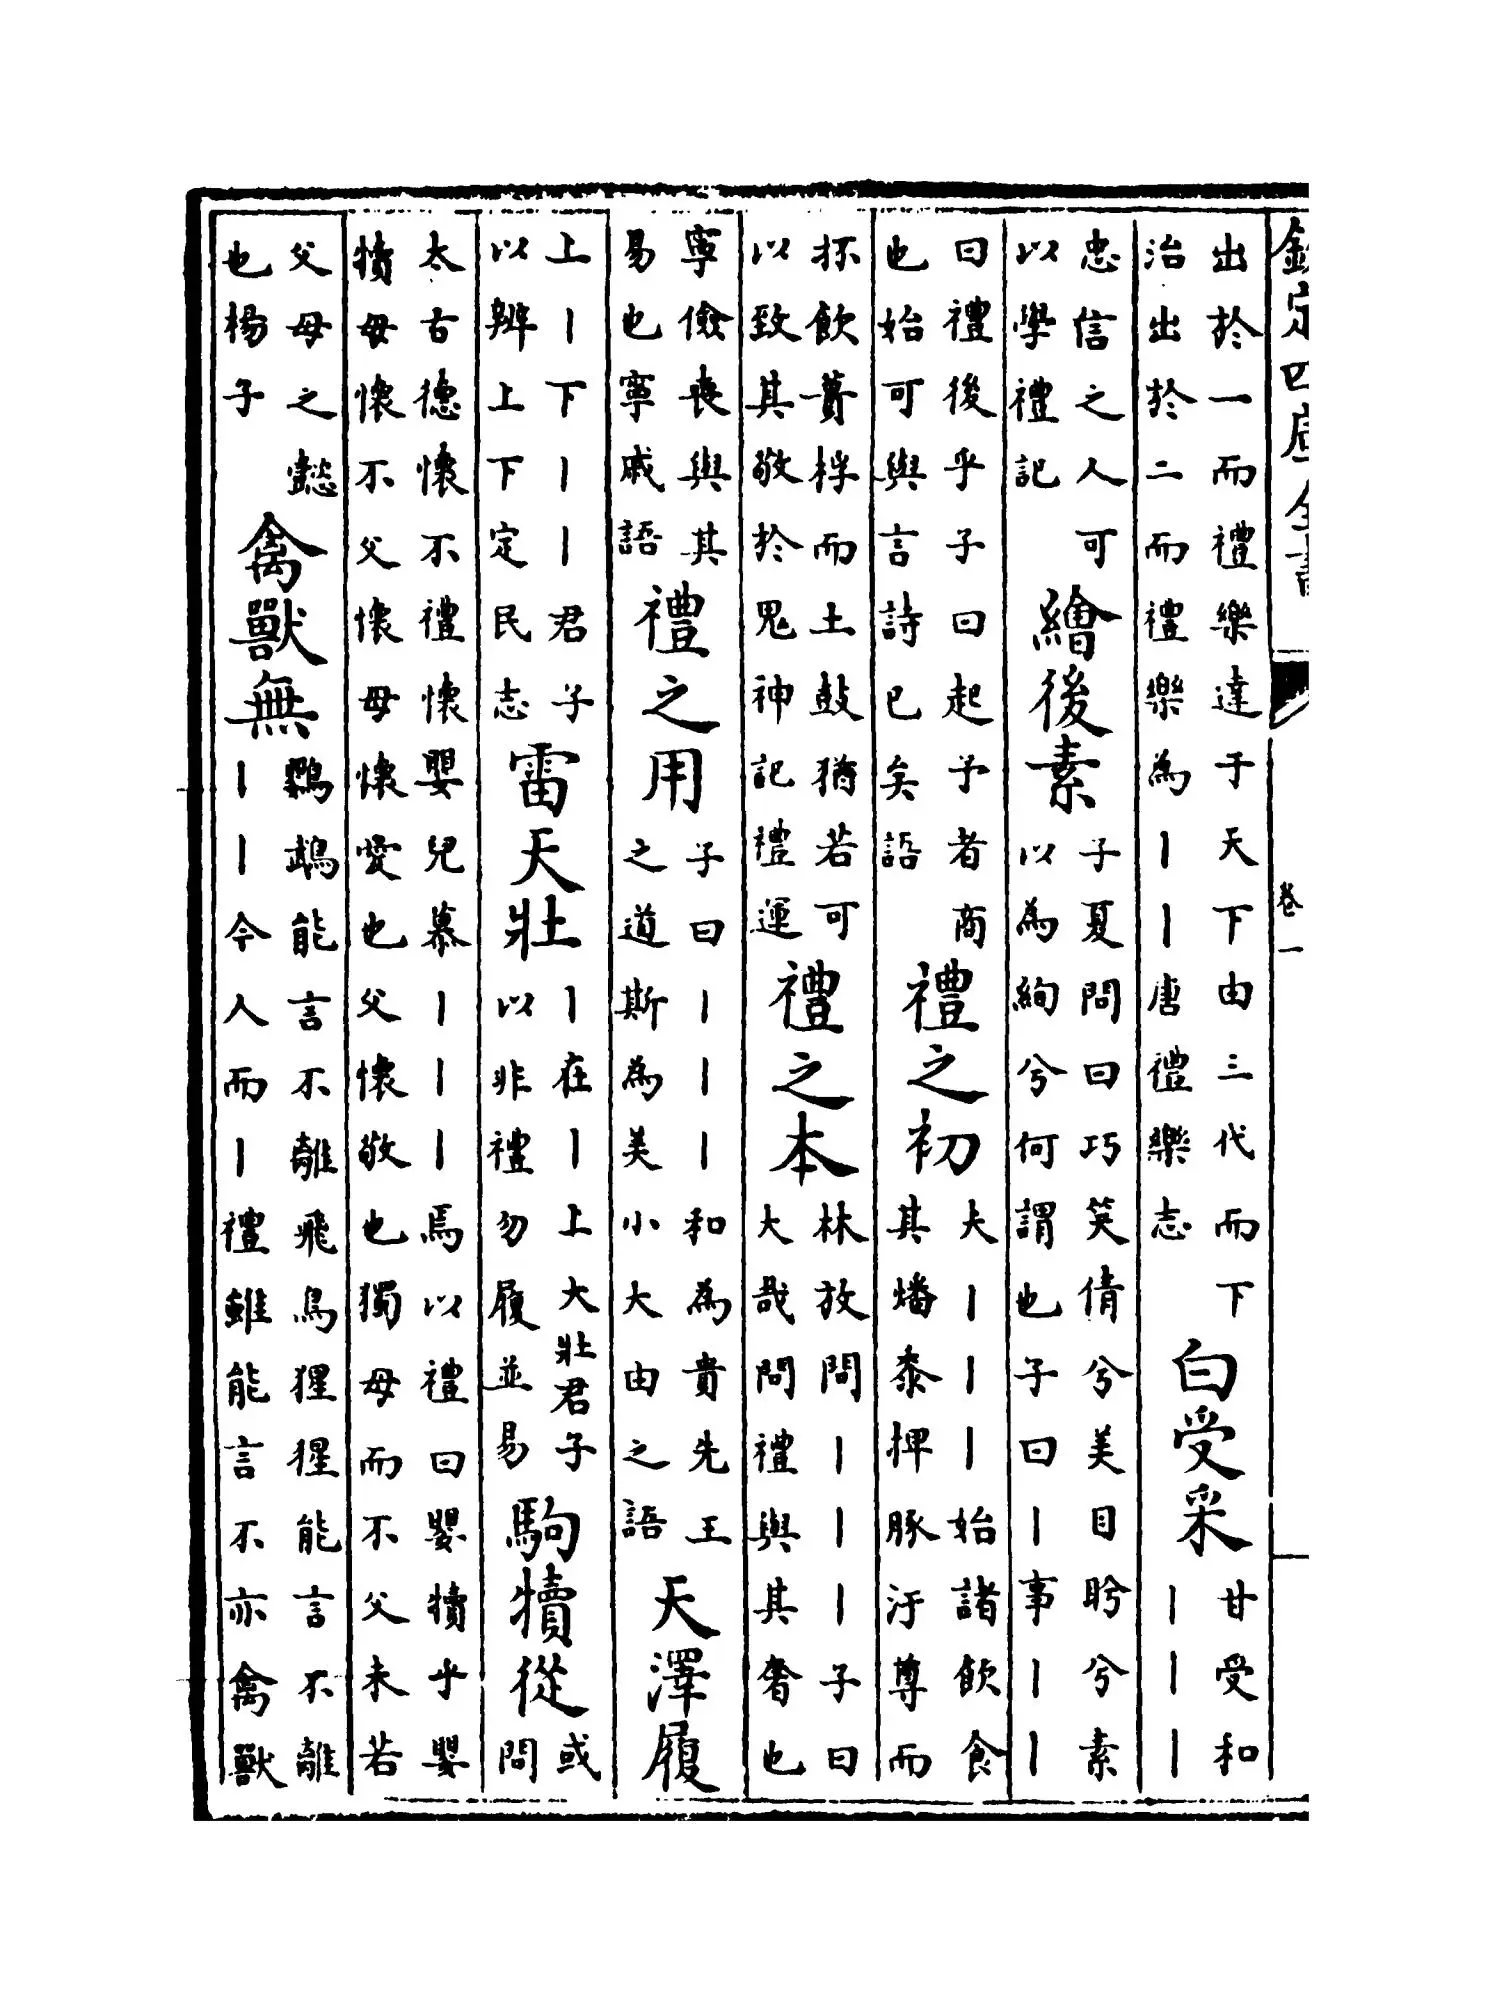 欽定四庫全書
卷一
出於一而禮樂達于天下由三代而下
治出於二而禮樂為丨丨唐禮樂志
白受采
甘受和
丨丨丨
忠信之人可
以學禮記
繪後素
子夏問曰巧笑倩兮美目盼兮素
以為絢兮何謂也子曰丨事丨丨
曰禮後乎子曰起予者商
也始可與言詩已矣語
禮之初
夫丨丨丨始諸飲食
其燔黍捭豚汙尊而
抔飲蕢桴而土鼓猶若可
以致其敬於鬼神記禮運
禮之本
林放問丨丨丨子曰
大哉問禮與其奢也
寧儉喪與其
易也寧戚語
禮之用
子曰丨丨丨和為貴先王
之道斯為美小大由之語
天澤履
上丨下丨丨君子
以辨上下定民志
雷天壯
丨在丨上大壯君子
以非禮勿履並易
駒犢從
或
問
太古德懷不禮懷嬰兒慕丨丨丨焉以禮曰嬰犢乎嬰
犢母懷不父懷母懷愛也父懷敬也獨母而不父未若
父母之懿
也楊子
禽獸無
鸚鵡能言不離飛鳥猩猩能言不離
丨丨今人而丨禮雖能言不亦禽獸